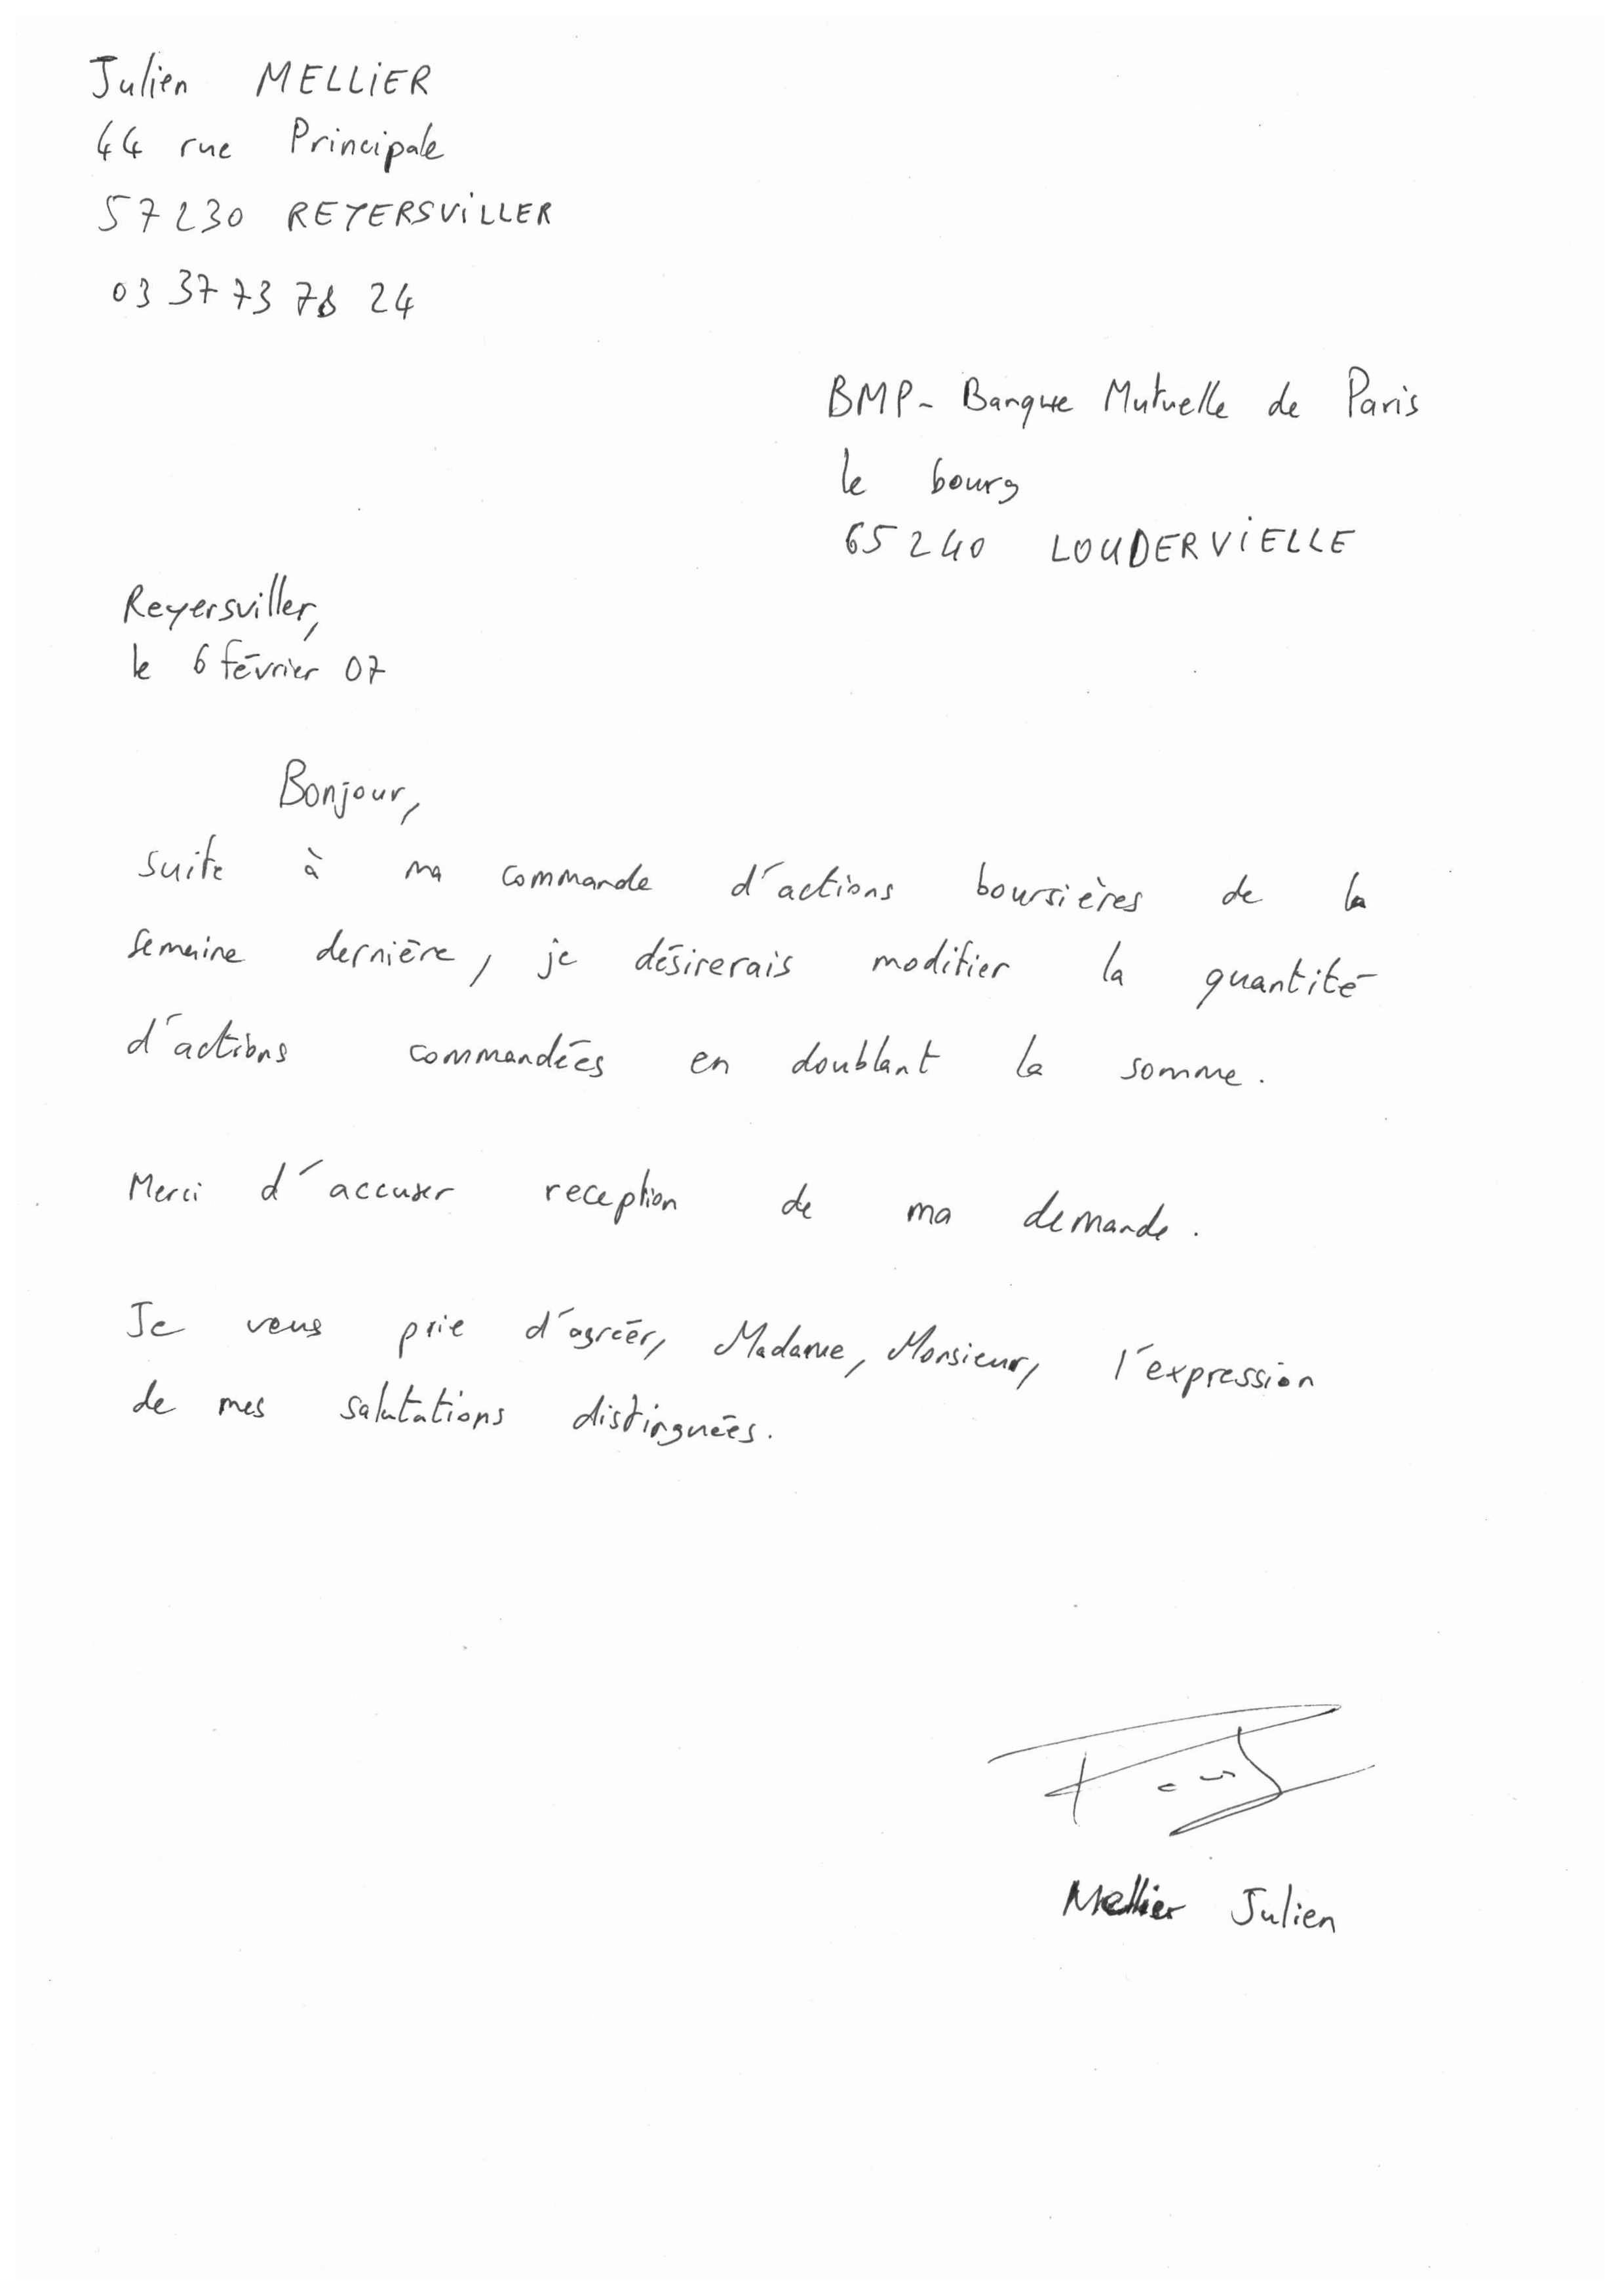 Julien MELLIER
44 rue Principale
57230 REYERSVILLER
03 37 73 78 24
BMP - Banque Mutuelle de Paris
le bourg
65240 LOUDERVIELLE
Reyersviller,
le 6 février 07
Bonjour,
suite à ma commande d'actions boursières de la
semaine dernière, je désirerais modifier la quantité
d'actions commandées en doublant la somme.
Merci d'accuser reception de ma demande.
Je vous prie d'agréer, Madame, Monsieur, l'expression
de mes salutations distinguées.
Mellier Julien